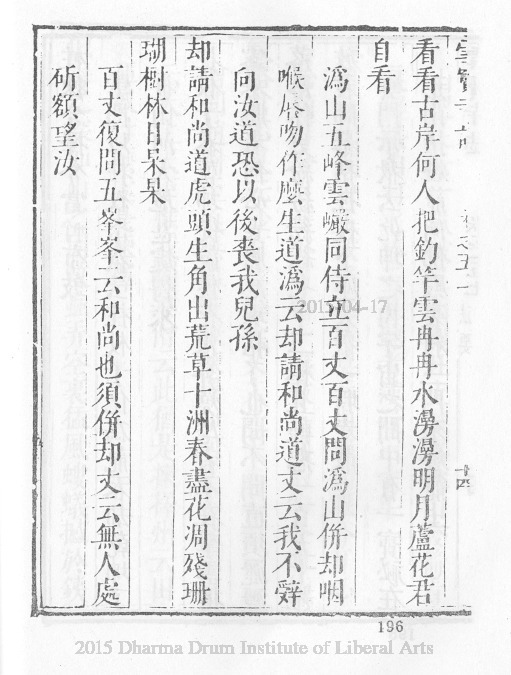 看看古岸何人把釣竿雲冉冉水漫漫明月蘆花君
自看
溈山五峰雲巖同侍立百丈百丈問溈山併却咽
喉唇吻作麼生道溈云却請和尚道丈云我不辤
向汝道恐以後喪我兒孫
却請和尚道虎頭生角出荒草十洲春盡花凋殘珊
瑚樹林日杲杲
百丈復問五峯峯云和尚也須併却丈云無人處
斫額望汝
十四
2015-04-17
196
2015 Dharma Drum Institute of Liberal Arts